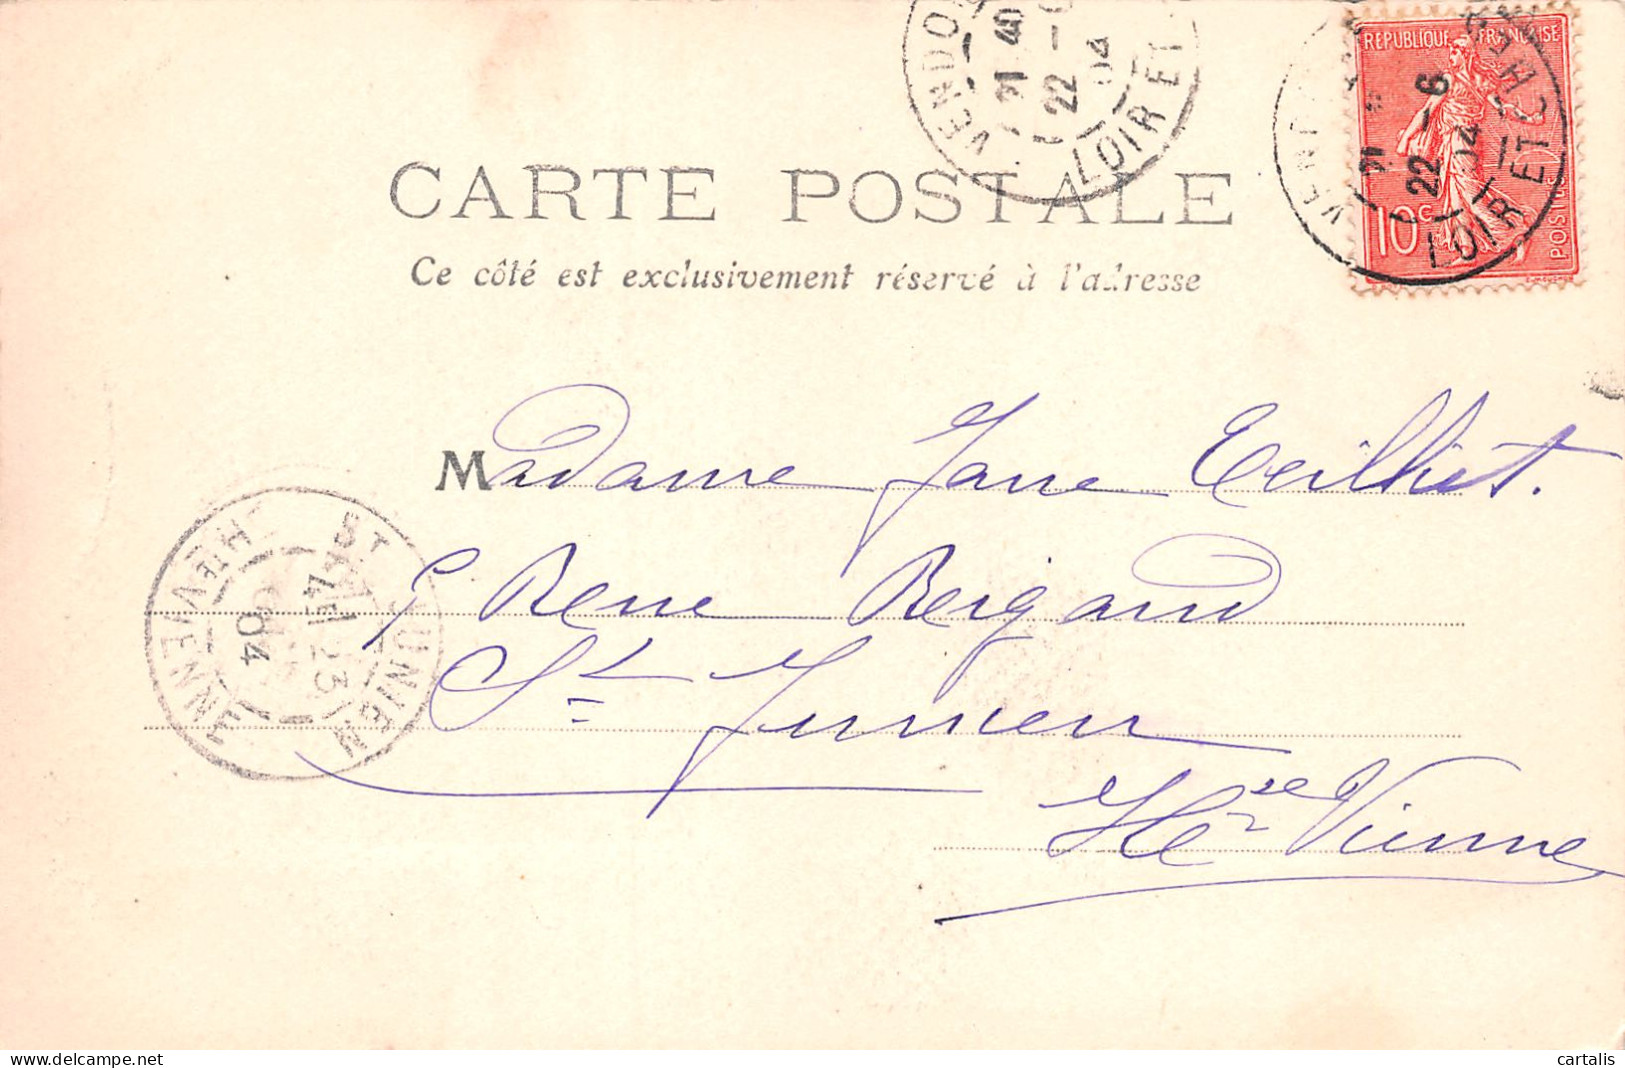 VENDO
21 40
22 -
04
LOIR ET
REPUBLIQUE FRANÇAISE
10 c
POSTES
21
22 -6
04
LOIR ET CHER
CARTE POSTALE
Ce côté est exclusivement réservé à l'adresse
Madame Jane Teilliet.
Rene Reigand
St Junien
Hte Vienne
ST JUNIEN
23
04
HTE VIENNE
cartalis